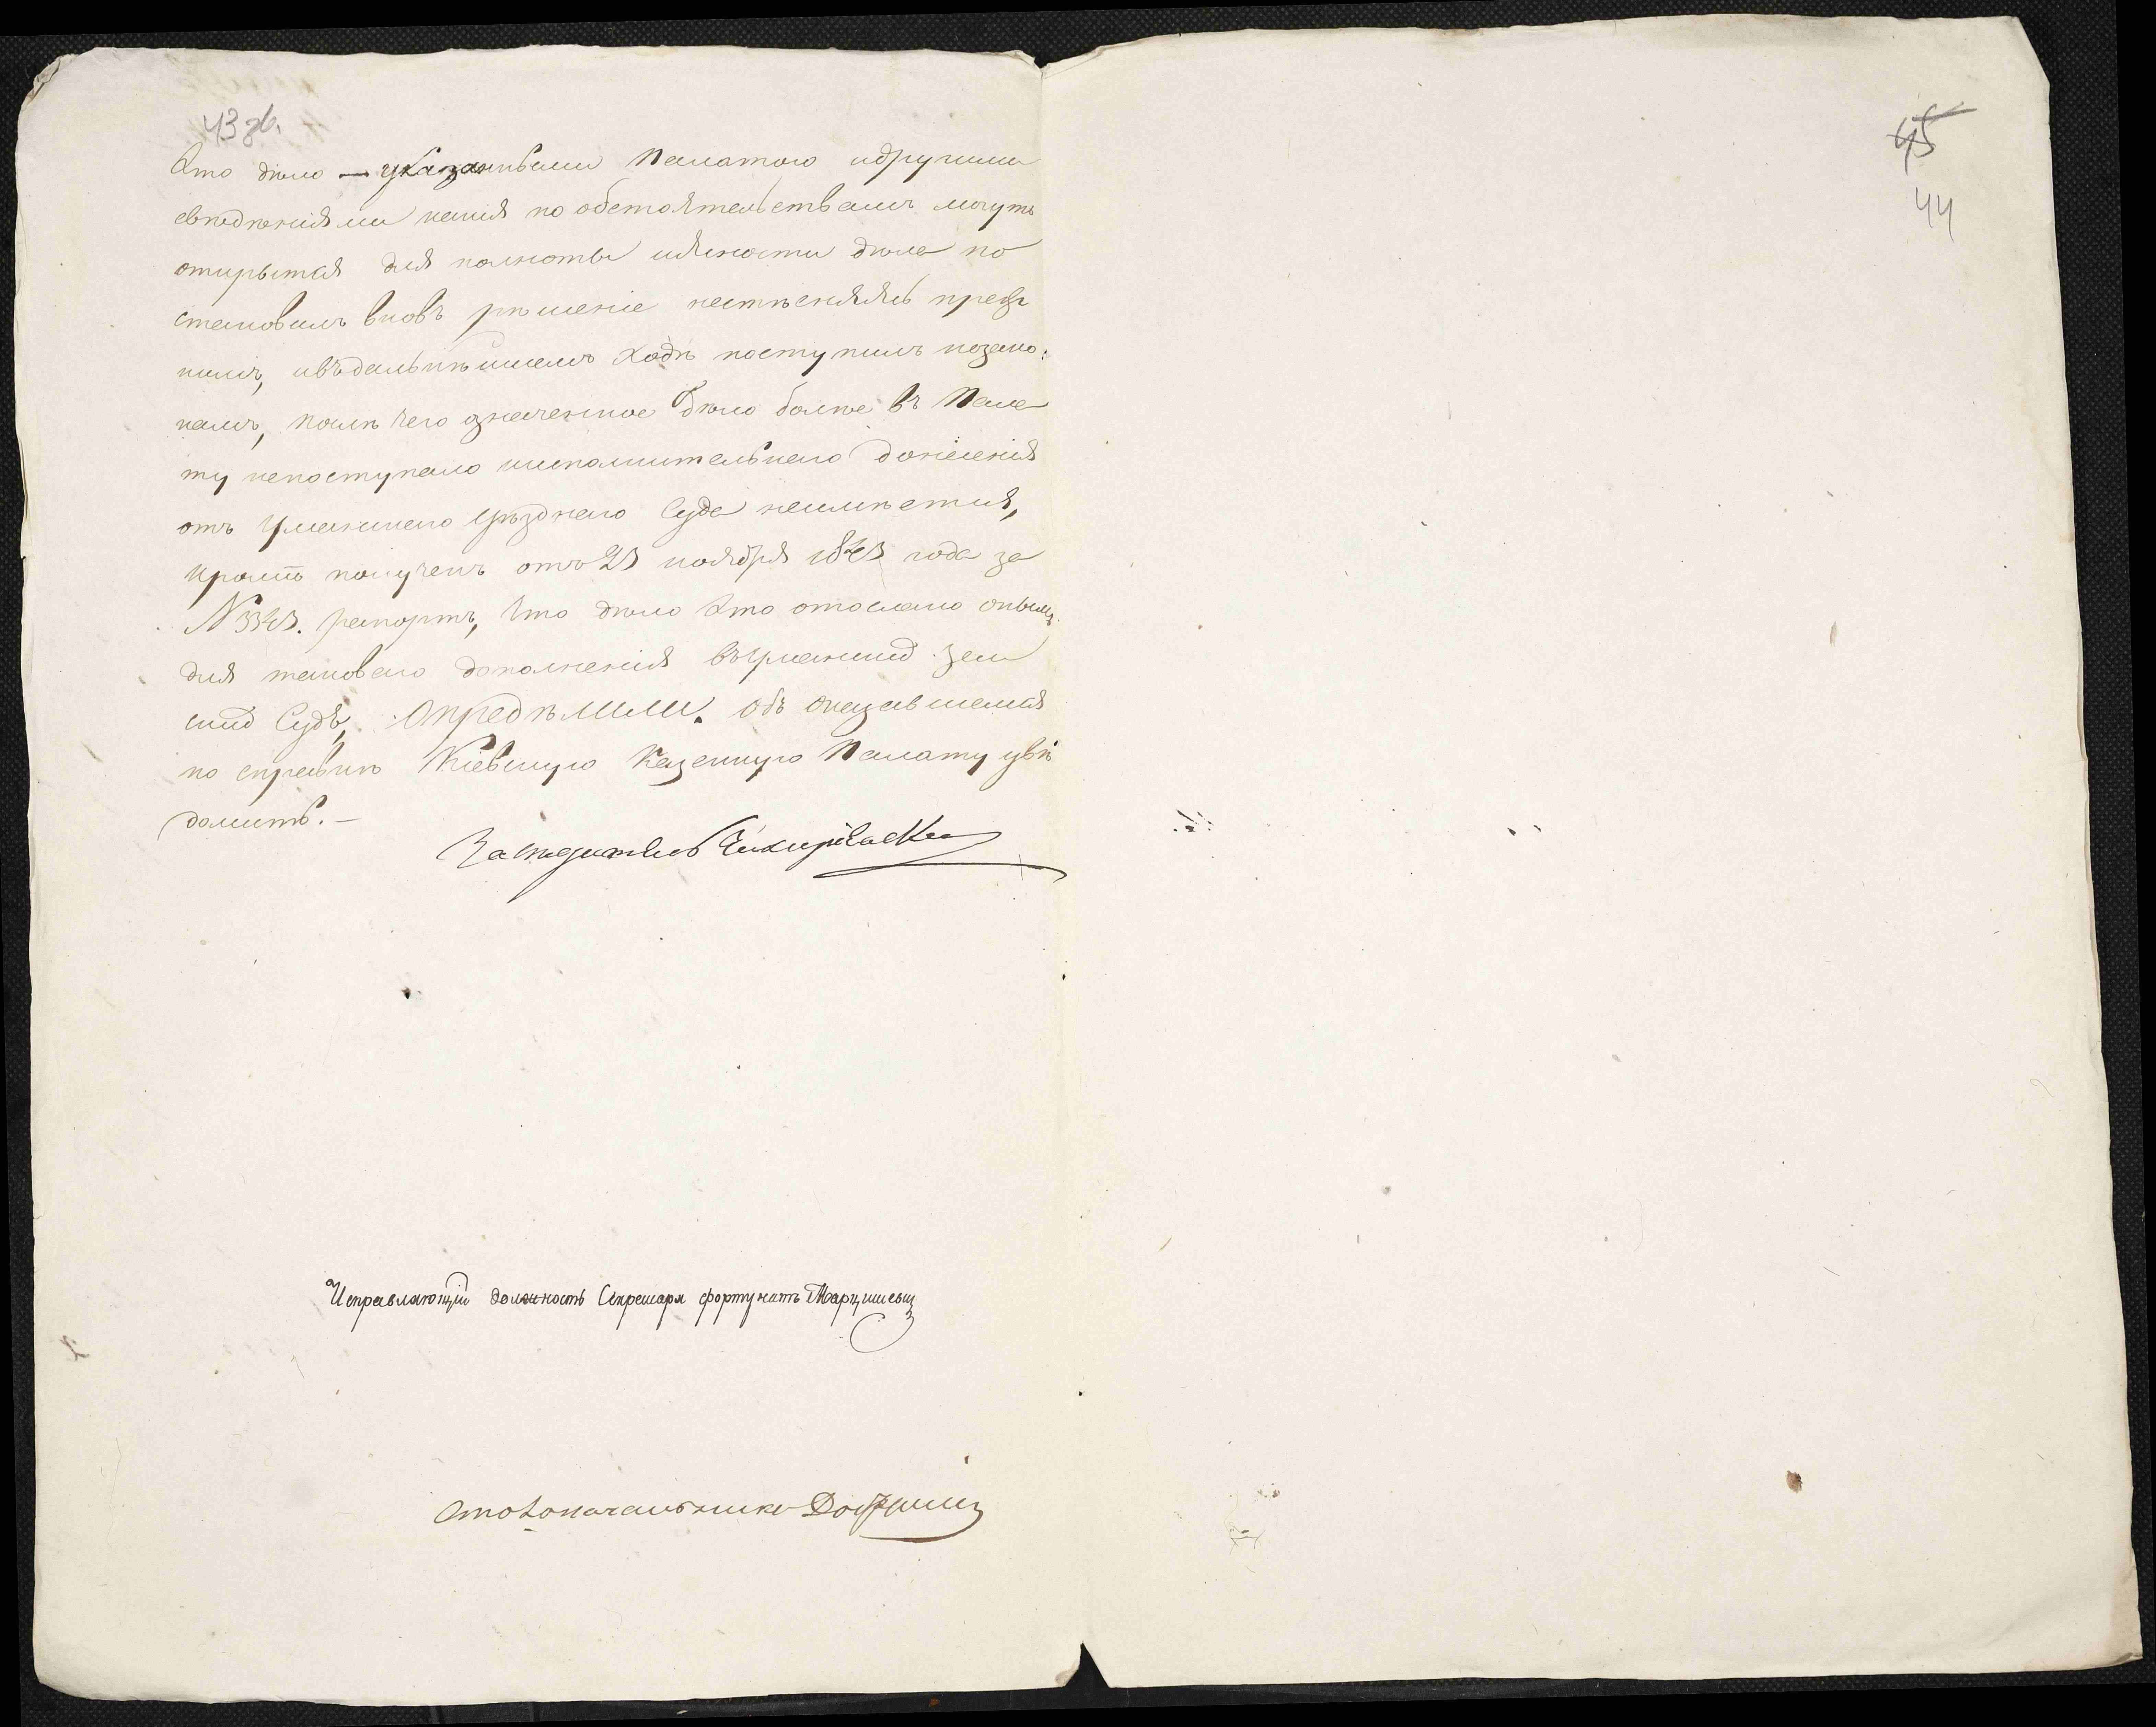 43 зв.
45
44
Это дѣло — указанными Палатою идругими
сведѣніями какія по обстоятельствамъ могутъ
открытся для полноты иясности дѣла по
становилъ вновь рѣшеніе нестѣсняясь преж
нимъ, ивъдальнѣйшемъ ходѣ поступилъ позако:
намъ, послѣ чего означенное дѣло болѣе въ Пала
ту непоступало иисполнительнаго донесенія
отъ Уманскаго Уѣзднаго Суда неимѣется,
кромѣ полученъ отъ 23 ноября 1843 года за
№ 3343. рапортъ, что дѣло это отослано
для таковаго дополненія въуманскій Зем
скій Судъ, Опредѣлили. Объ оказавшемся
по справкѣ Кіевскую Казенную Палату увѣ
домить. —
Засѣдатель
Исправляющій должность Секретаря Фортунатъ
Столоначальникъ